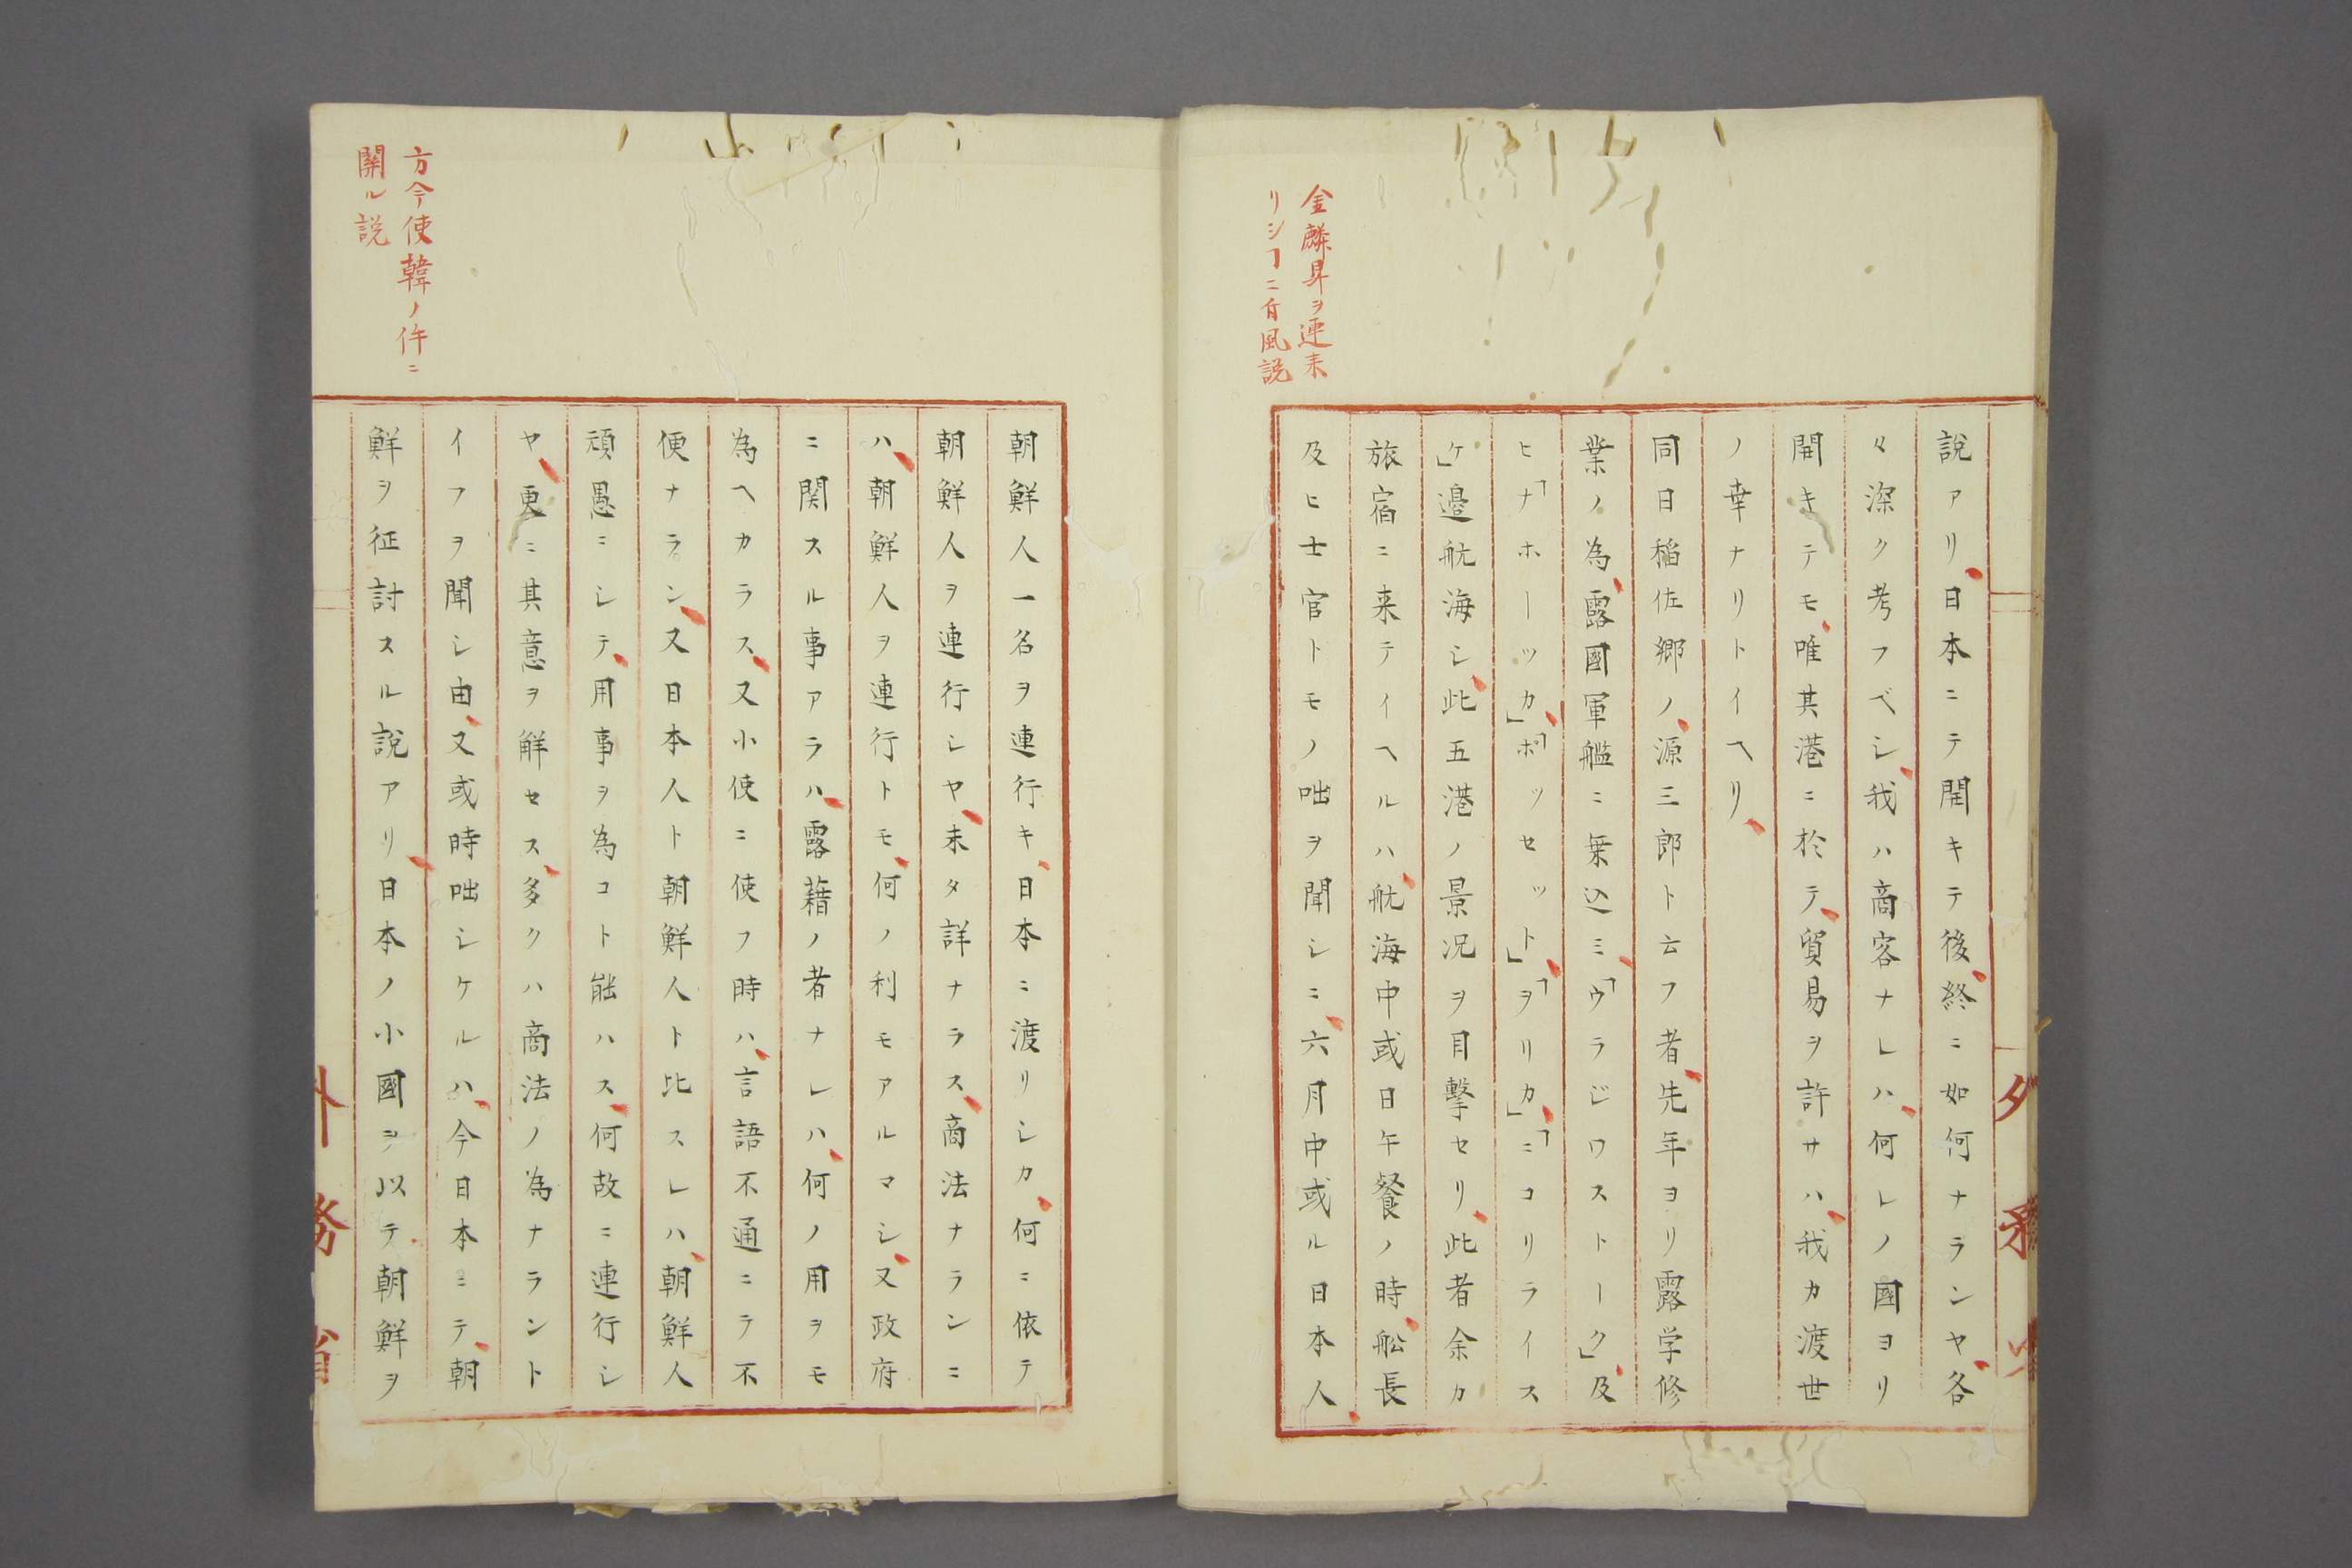 金麟昇ヲ連来
リシヿニ付風説
説アリ日本ニテ開キテ後終ニ如何ナランヤ各
々深ク考フベシ我ハ商客ナレハ何レノ國ヨリ
開キテモ唯其港ニ於テ貿易ヲ許サハ我カ渡世
ノ幸ナリトイヘリ
同日稲佐郷ノ源三郎ト云フ者先年ヨリ露学修
業ノ為露國軍艦ニ乗込ミ「ウラジワストーク」及
ヒ「ナホーツカ」「ポツセット」「ヲリカ」「ニコリライス
ケ」邉航海シ此五港ノ景况ヲ目撃セリ此者余カ
旅宿ニ来テイヘルハ航海中或日午餐ノ時舩長
及ヒ士官トモノ咄ヲ聞シニ六月中或ル日本人
朝鮮人一名ヲ連行キ日本ニ渡リシカ何ニ依テ
朝鮮人ヲ連行シヤ未タ詳ナラス商法ナランニ
ハ朝鮮人ヲ連行トモ何ノ利モアルマシ又政府
ニ関スル事アラハ露藉ノ者ナレハ何ノ用ヲモ
為ヘカラス又小使ニ使フ時ハ言語不通ニテ不
便ナラン又日本人ト朝鮮人ト比スレハ朝鮮人
頑愚ニシテ用事ヲ為コト能ハス何故ニ連行シ
ヤ更ニ其意ヲ解セス多クハ商法ノ為ナラント
イフヲ聞シ由又或時咄シケルハ今日本ニテ朝
鮮ヲ征討スル説アリ日本ノ小國ヲ以テ朝鮮ヲ
方今使韓ノ件ニ
関ル説
外務省